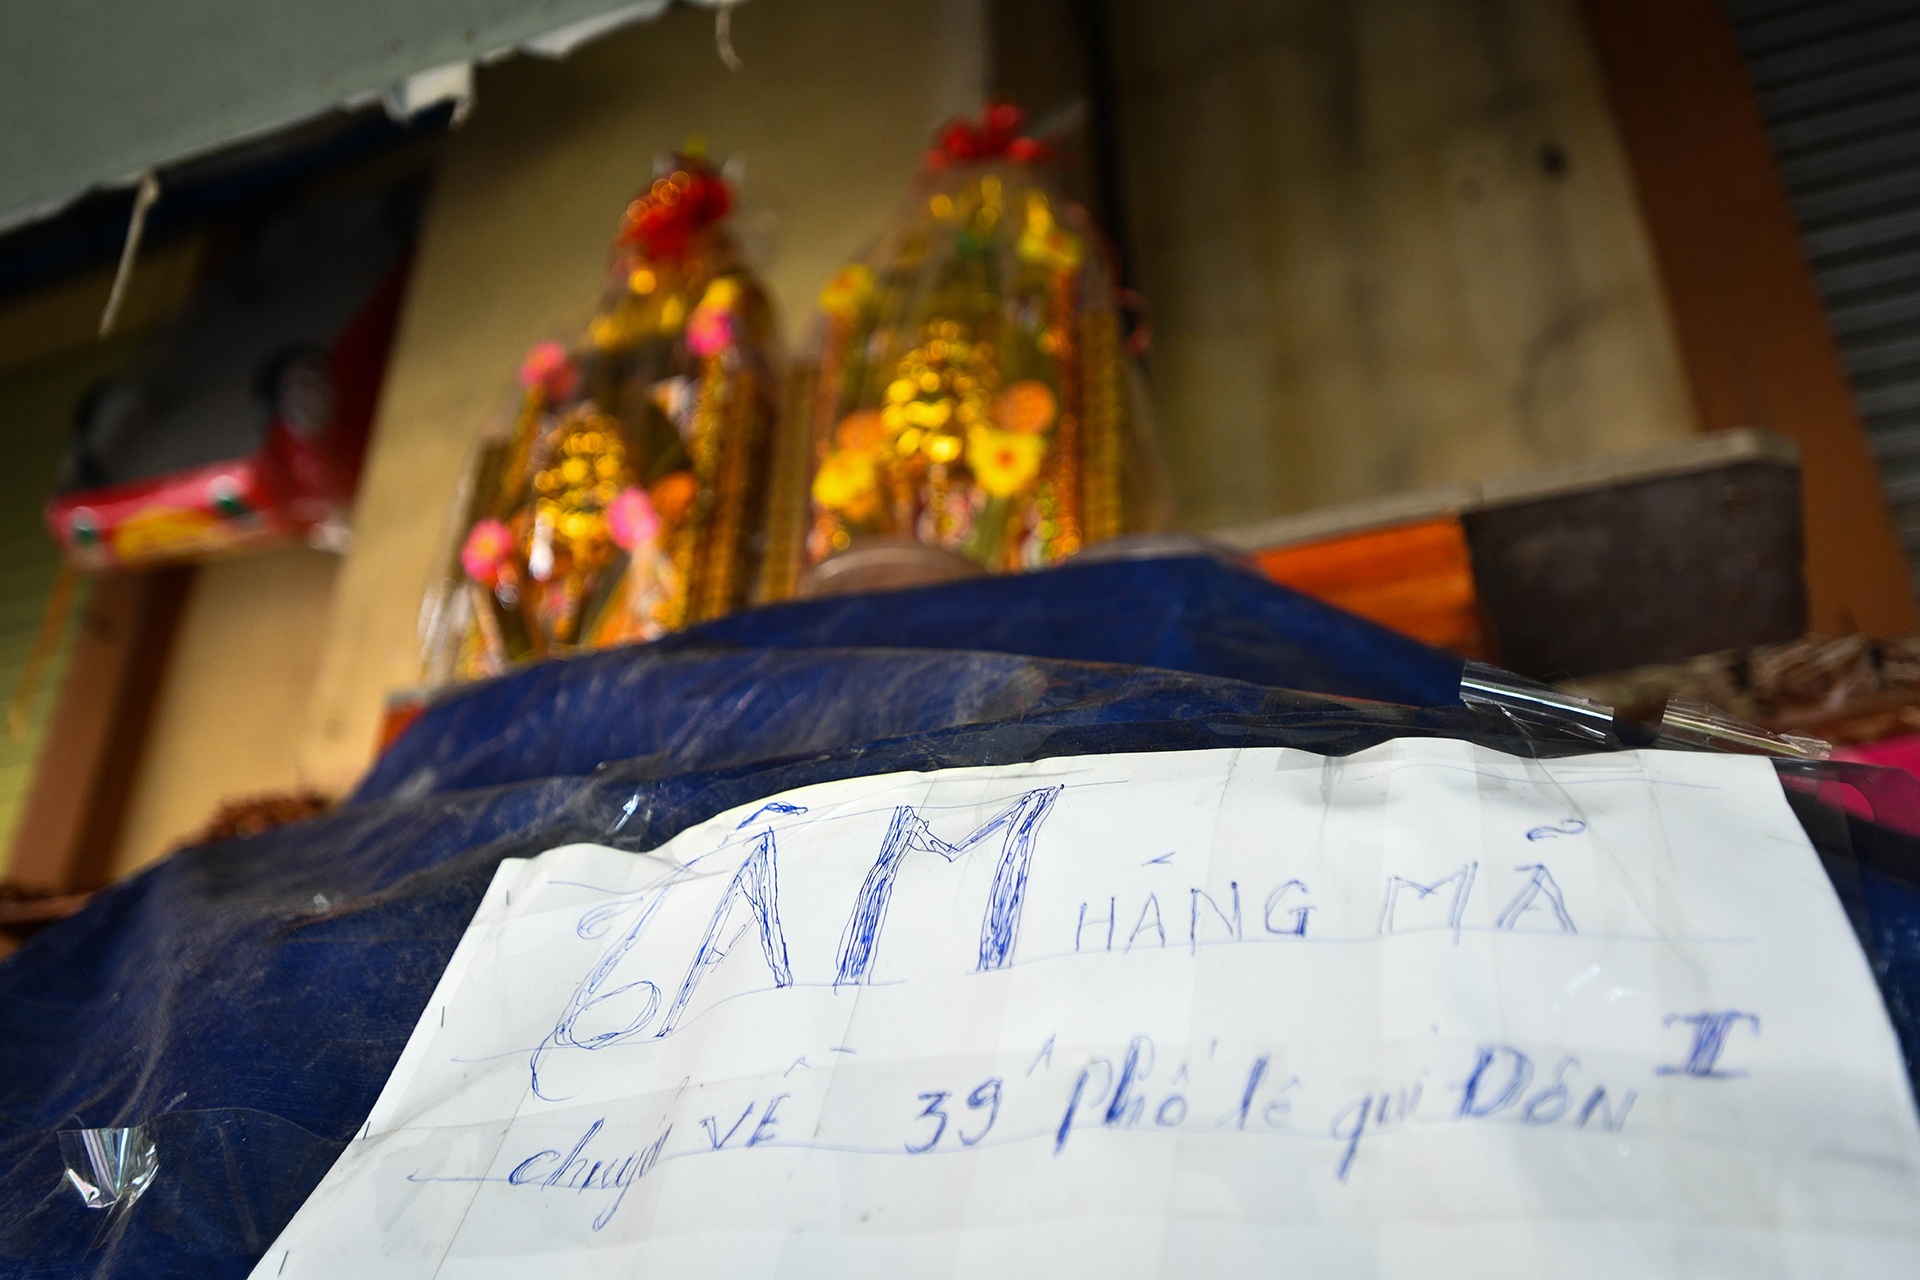 TÂM HÀNG MÃ
chuyển VỀ 39 Phố lê quí Đôn I